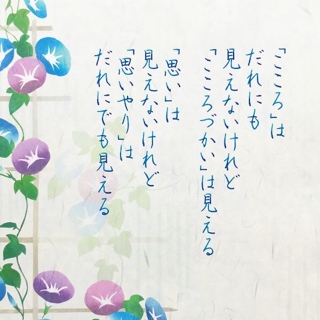 「こころ」は
だれにも
見えないけれど
「こころづかい」は見える
「思い」は
見えないけれど
「思いやり」は
だれにでも見える